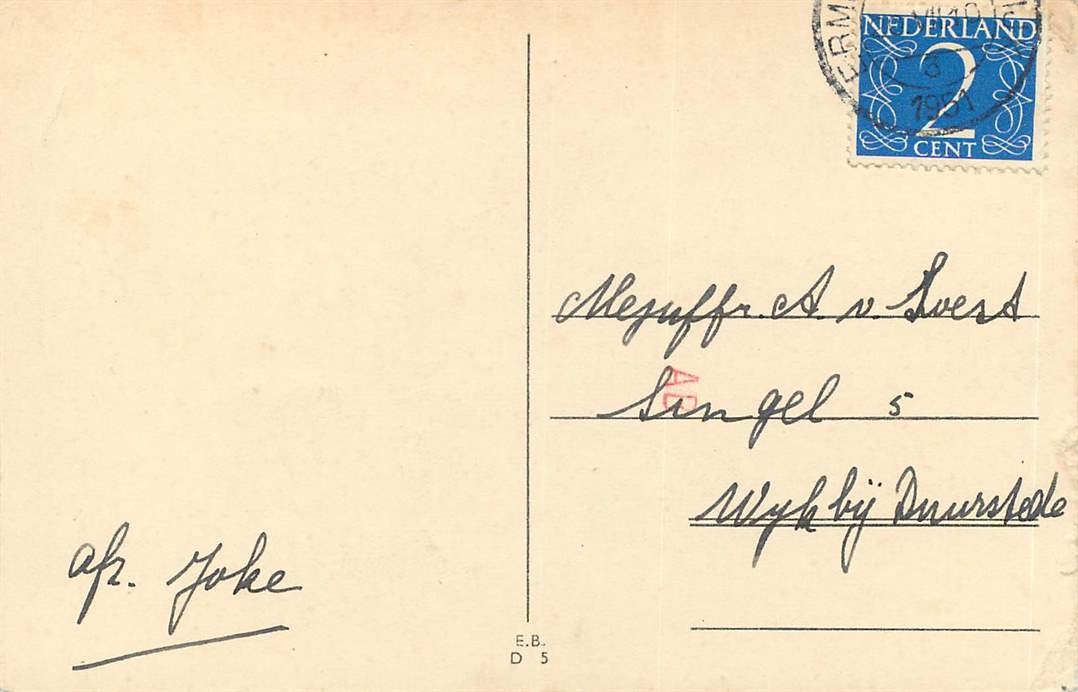 NEDERLAND
2
CENT
1951
Mejuffr. A. v. Soest
Singel 5
Wyk bij Duurstede
afz. Joke
E.B.
D 5